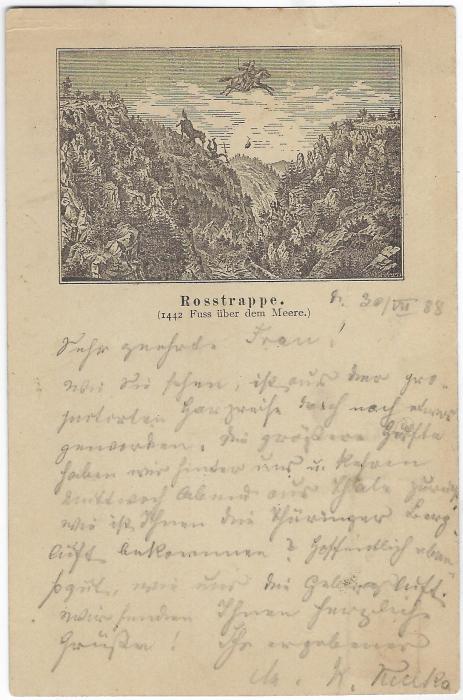 Rosstrappe.
(1442 Fuss über dem Meere.)
30/VII 88
Sehr geehrte Frau!
Wie Sie sehen, ist aus der pro-
jectirten Harzreise doch noch etwas
geworden. Die größere Hälfte
haben wir hinter uns u. kehren
Mittwoch Abend aus Thale zurück
Wie ist Ihnen die Thüringer Berg
luft bekommen? Hoffentlich eben
so gut, wie uns die Gebirgsluft.
Wir senden Ihnen herzliche
Grüße! Ihr ergebener